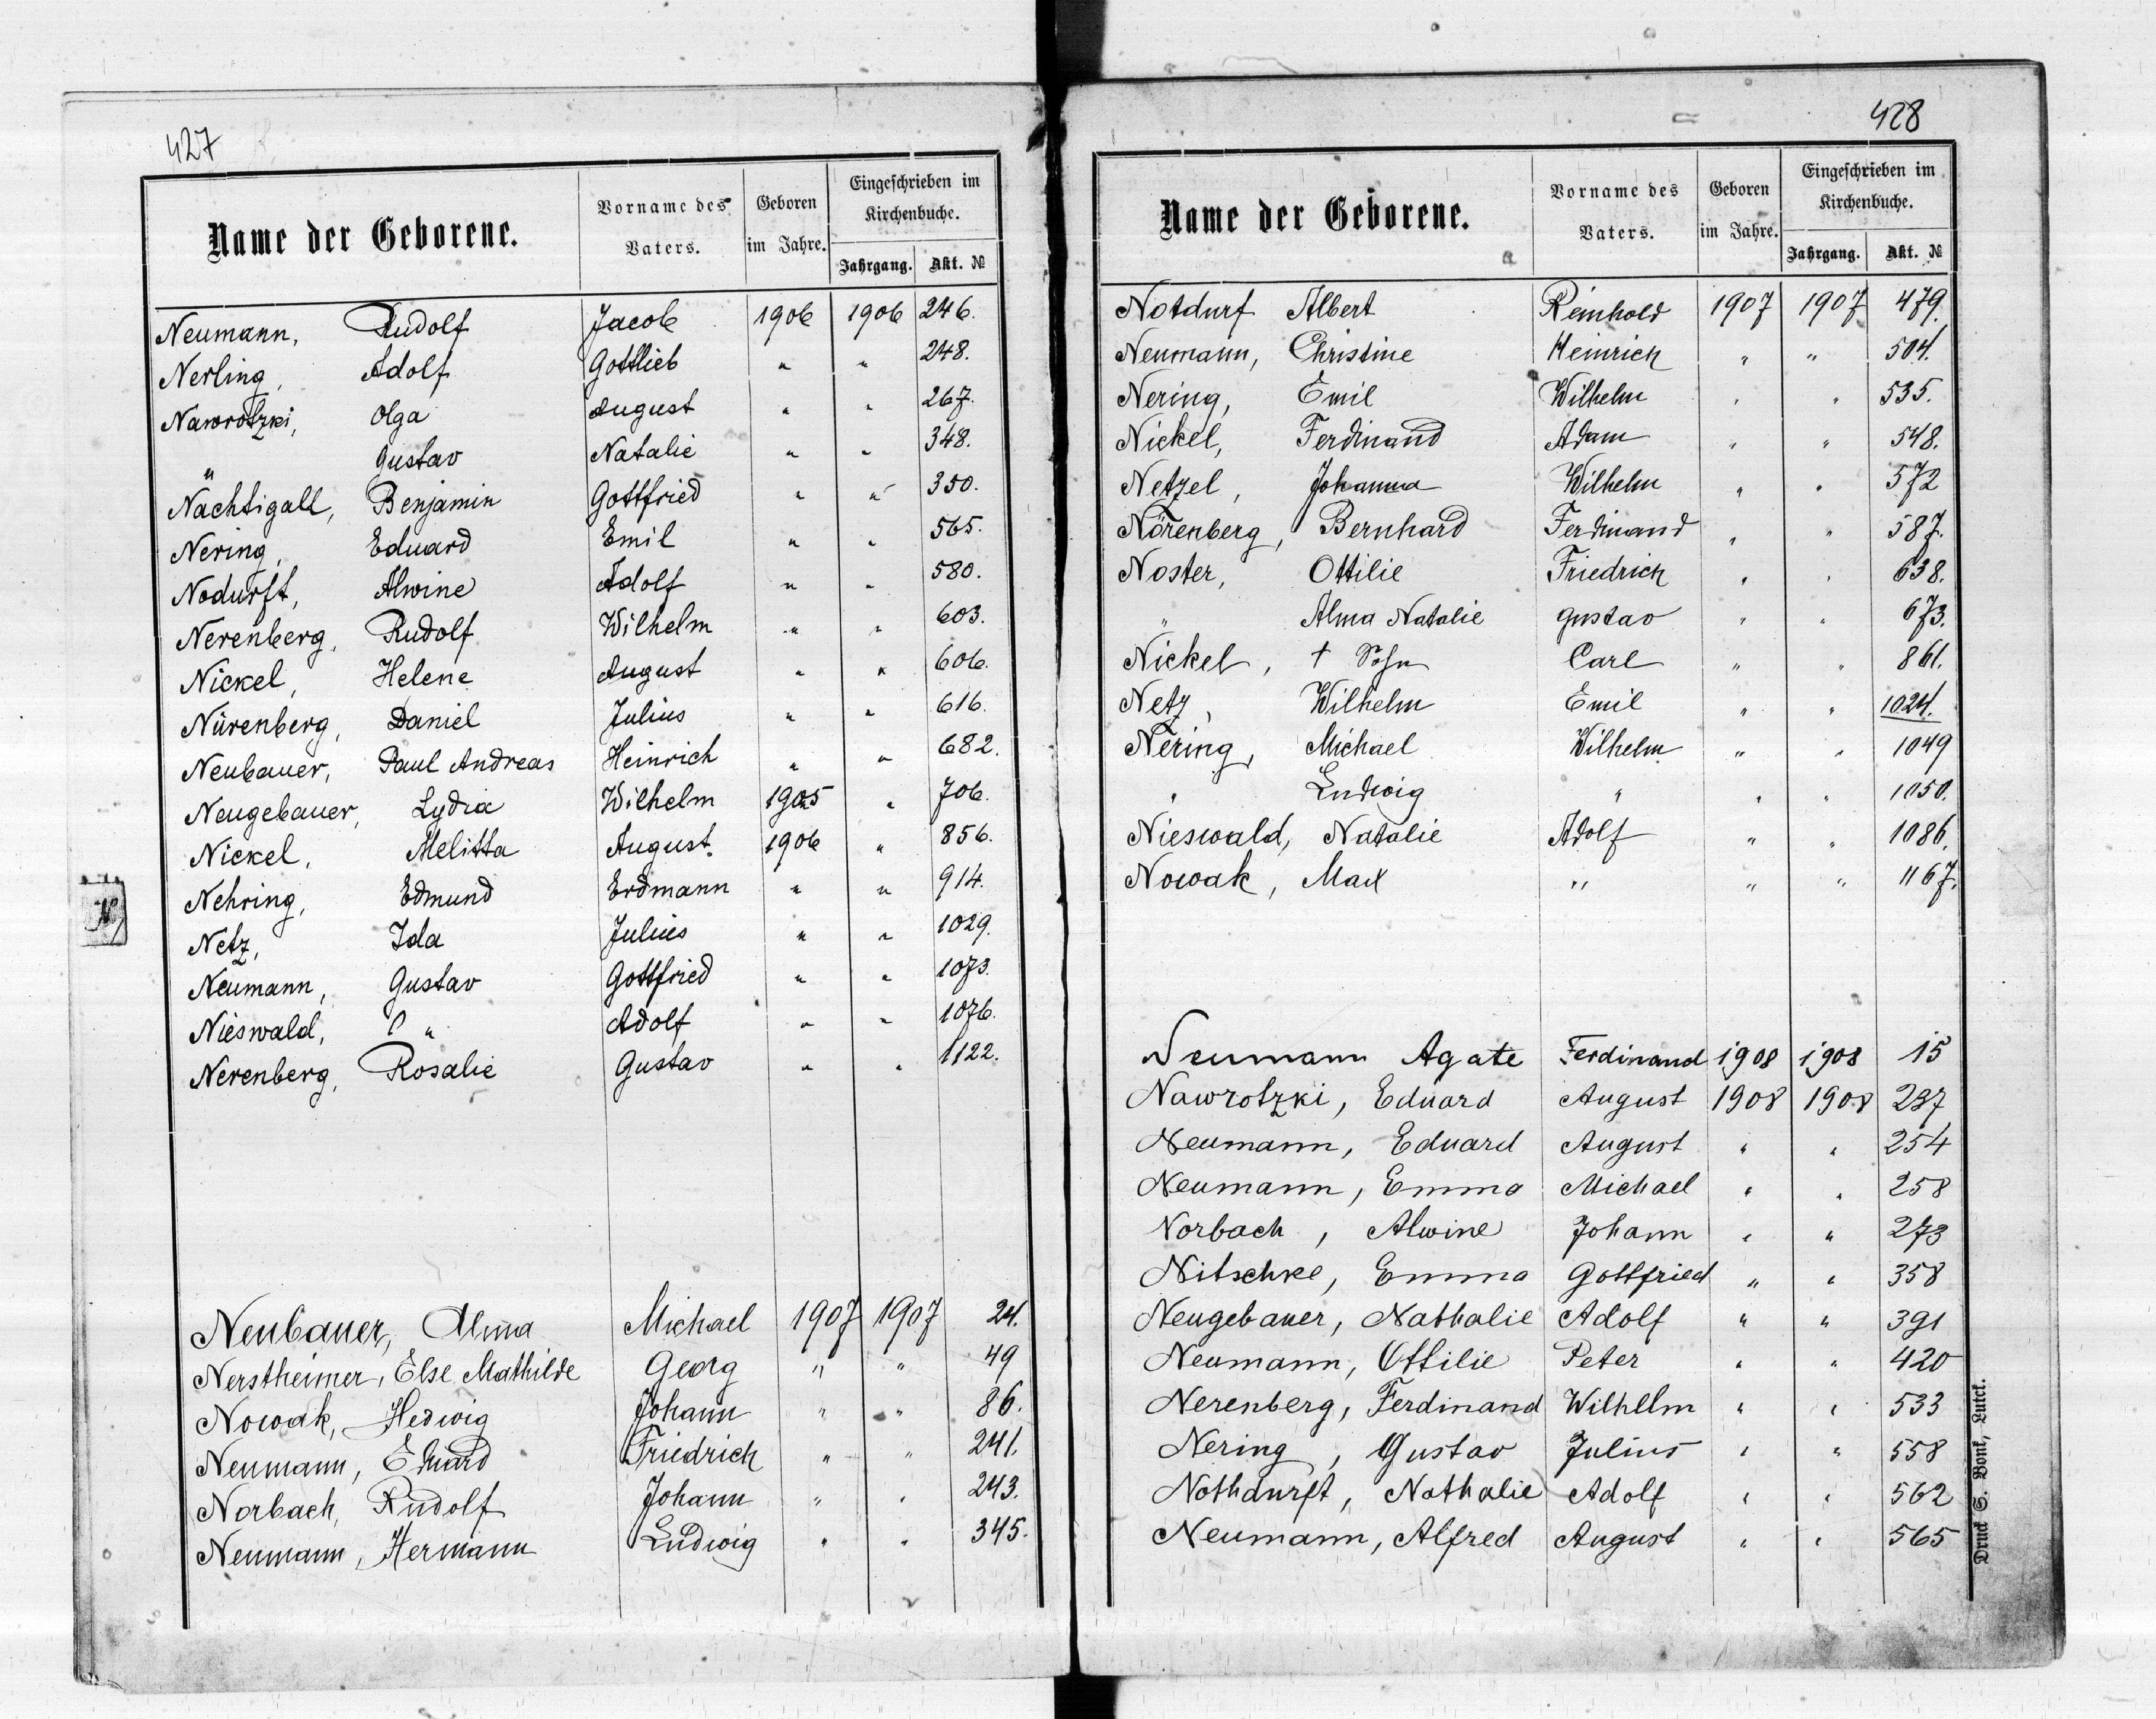 427
Name der Geborene. Vorname des Vaters. Geboren im Jahre. Eingeschrieben im Kirchenbuche. Jahrgang. Akt. №
Neumann, Rudolf Jacob 1906 1906 246.
Nerling, Adolf Gottlieb " " 248.
Nawrotzki, Olga August " " 267.
" Gustav Natalie " " 348.
Nachtigall, Benjamin Gottfried " " 350.
Nering, Eduard Emil " " 565.
Nodurft, Alwine Adolf " " 580.
Nerenberg, Rudolf Wilhelm " " 603.
Nickel, Helene August " " 606.
Nürenberg, Daniel Julius " " 616.
Neubauer, Paul Andreas Heinrich " " 682.
Neugebauer, Lydia Wilhelm 1905 " 706.
Nickel, Melitta August. 1906 " 856.
Nehring, Edmund Erdmann " " 914.
Netz, Ida Julius " " 1029.
Neumann, Gustav Gottfried " " 1073.
Nieswald, " Adolf " " 1076.
Nerenberg, Rosalie Gustav " " 1122.
Neubauer, Alma Michael 1907 1907 24.
Nerstheimer, Else Mathilde Georg " " 49
Nowak, Hedwig Johann " " 86.
Neumann, Eduard Friedrich " " 241.
Norbach, Rudolf Johann " " 243.
Neumann, Hermann Ludwig " " 345.
N
428
Name der Geborene. Vorname des Vaters. Geboren im Jahre. Eingeschrieben im Kirchenbuche. Jahrgang. Akt. №
Notdurf Albert Reinhold 1907 1907 479.
Neumann, Christine Heinrich " " 504.
Nering, Emil Wilhelm " " 535.
Nickel, Ferdinand Adam " " 548.
Netzel, Johanna Wilhelm " " 572
Nörenberg, Bernhard Ferdinand " " 587.
Noster, Ottilie Friedrich " " 638.
" Alma Natalie Gustav " " 673.
Nickel, † Sohn Carl " " 861.
Netz, Wilhelm Emil " " 1024.
Nering, Michael Wilhelm " " 1049
" Ludwig " " " 1050.
Nieswald, Natalie Adolf " " 1086.
Nowak, Max " " " 1167.
Neumann Agate Ferdinand 1908 1908 15
Nawrotzki, Eduard August 1908 1908 237
Neumann, Eduard August " " 254
Neumann, Emma Michael " " 258
Norbach, Alwine Johann " " 273
Nitschke, Emma Gottfried " " 358
Neugebauer, Nathalie Adolf " " 391
Neumann, Ottilie Peter " " 420
Nerenberg, Ferdinand Wilhelm " " 533
Nering, Gustav Julius " " 558
Nothdurft, Nathalie Adolf " " 562
Neumann, Alfred August " " 565
Druck S. Bonk, Lutck.